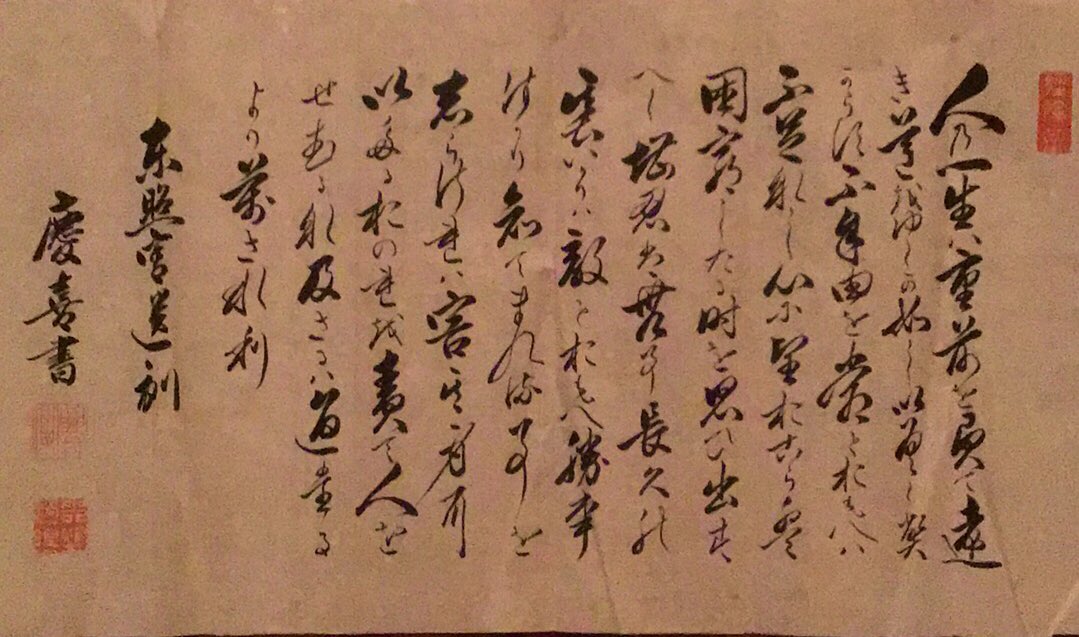 人乃一生ハ重荷を負て遠
き道をゆくか如し以そくへ
からす不自由を常とおもへハ
不足なし心に望おこらは
困窮したる時を思ひ出す
へし堪忍ハ無事長久の
基いかりハ敵とおもへ勝事
はかり知てまくる事を
志らされハ害其身に
以たるおのれを責て人を
せむるな及さるハ過たる
より萬される
東照宮遺訓
慶喜書